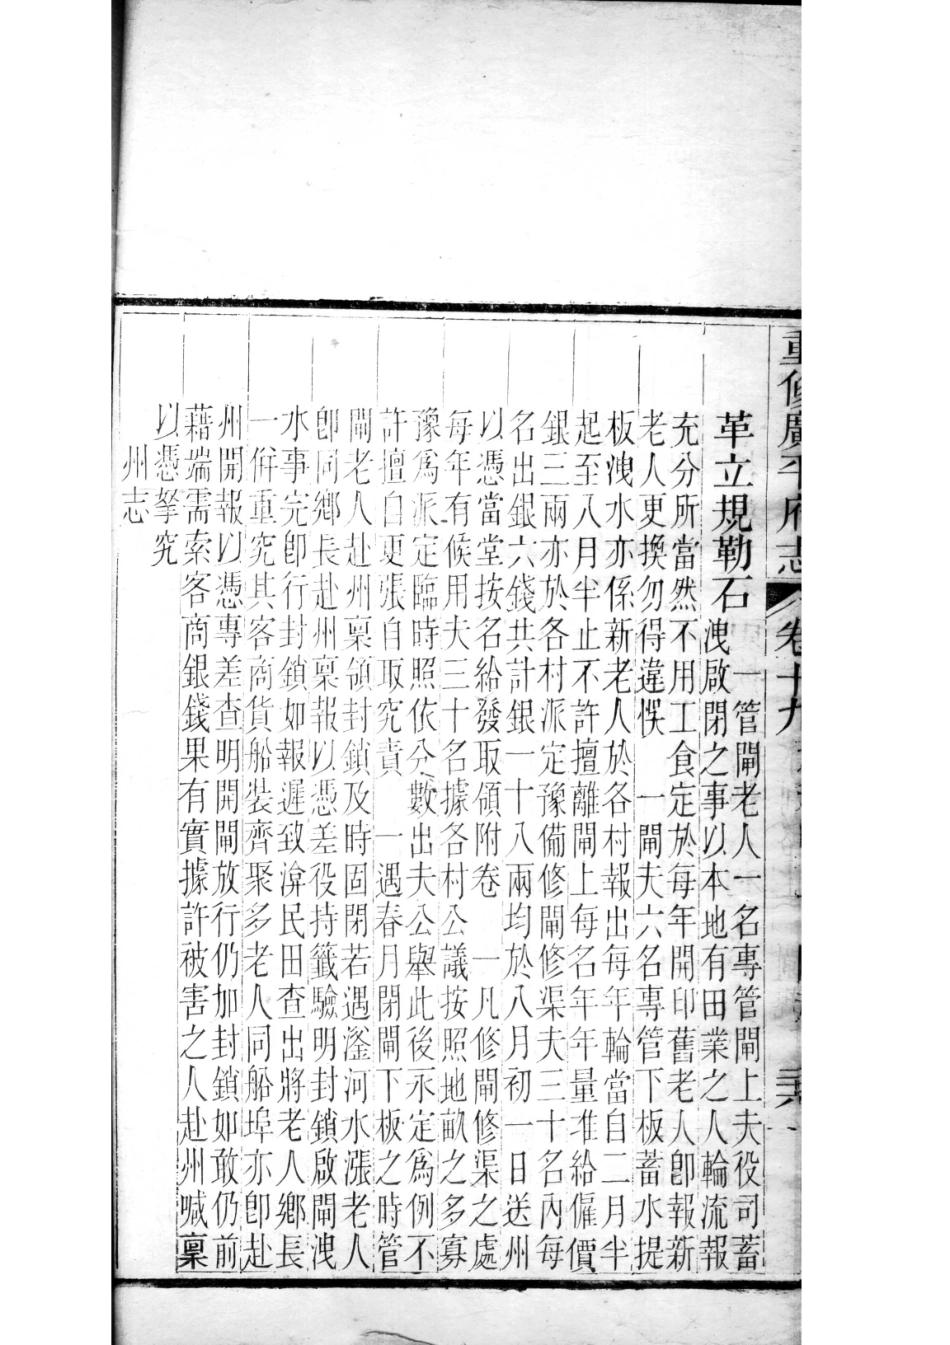 重修廣平府志 卷十九
革立規勒石 一管閘老人一名專管閘上夫役司蓄
洩啟閉之事以本地有田業之人輪流報
充分所當然不用工食定於每年開印舊老人卽報新
老人更換勿得違悞 一閘夫六名專管下板蓄水提
板洩水亦係新老人於各村報出每年輪當自二月半
起至八月半止不許擅離閘上每名年年量准給僱價
銀三兩亦於各村派定豫備修閘修渠夫三十名內每
名出銀六錢共計銀一十八兩均於八月初一日送州
以憑當堂按名給發取領附卷 一凡修閘修渠之處
每年有候用夫三十名據各村公議按照地畝之多寡
豫爲派定臨時照依分數出夫公舉此後永定爲例不
許擅自更張自取究責 一遇春月閉閘下板之時管
閘老人赴州稟領封鎖及時固閉若遇滏河水漲老人
卽同鄉長赴州稟報以憑差役持籤驗明封鎖啟閘洩
水事完卽行封鎖如報遲致渰民田查出將老人鄉長
一倂重究其客商貨船裝齊聚多老人同船埠亦卽赴
州開報以憑專差查明開閘放行仍加封鎖如敢仍前
藉端需索客商銀錢果有實據許被害之人赴州喊稟
以憑拏究
州志